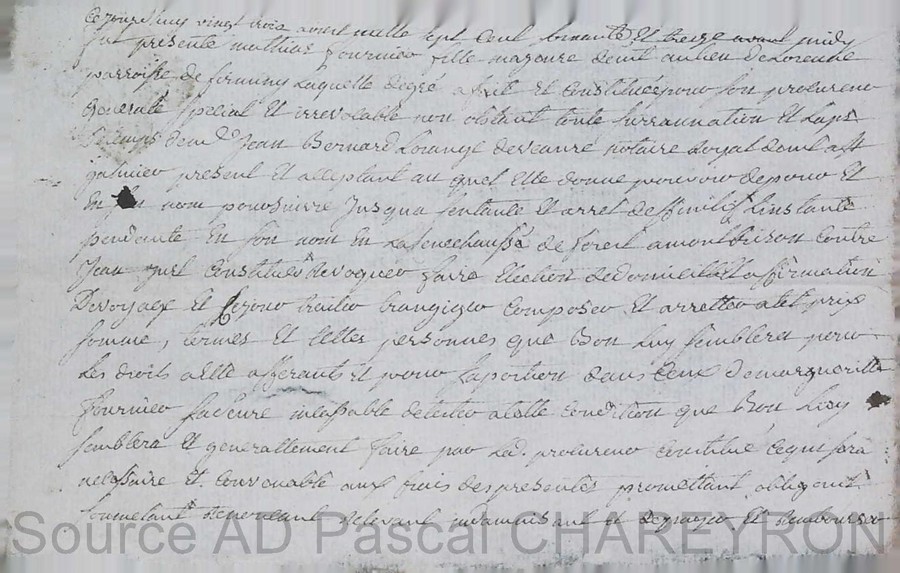 Ce jourdhuy vingt trois aoust mille sept cent soixante et treize avant midy
fut presente mathias fournier fille majeure demt au lieu de
parroisse de firminy laquelle degré a fait et constitué pour son procureur
general special et irrevocable non obstant toute surrannation et laps
de temps Jean Bernard notaire Royal demt a st
galmier present et acceptant au quel elle donne pouvoir de pour et
en son nom poursuivre jusqua sentance et arret deffinitif linstance
pendante en son nom en la senechaussé de forest a montbrison contre
Jean constituer Revoquer faire election de domicille et affirmation
De voyage et traiter transiger composer et arretter a tel prix
somme, termes et telles personnes que Bon luy semblera pour
Les droits a elle afferants et pour la portion dans ceux de margueritte
fournier sa seure incapable de telle condition que Bon luy
semblera et generallement faire par led. procureur constitué ce qui sera
necessaire et convenable aux frais des presentes promettant obligent
soumetant Renonceant relevant indamnisant et et Rembourser
Source AD Pascal CHAREYRON